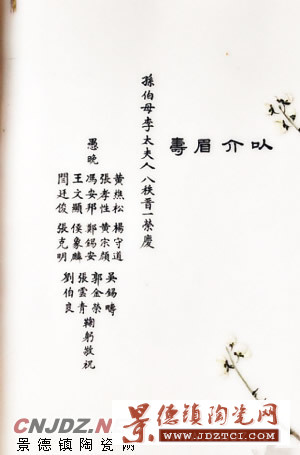 以介眉壽
孫伯母李太夫人八秩晋一榮慶
愚晚
黃樵松 楊守道
張孝性 黃宗顏
馮安邦 鄭錫安
王文顯 侯象麟
閆廷俊 張克明
吳錫疇
郭金榮
張雲青
劉伯良
鞠躬敬祝
CNJDZ.N
景德镇陶瓷网
景德镇陶瓷网
WWW.JDZTCI.COM